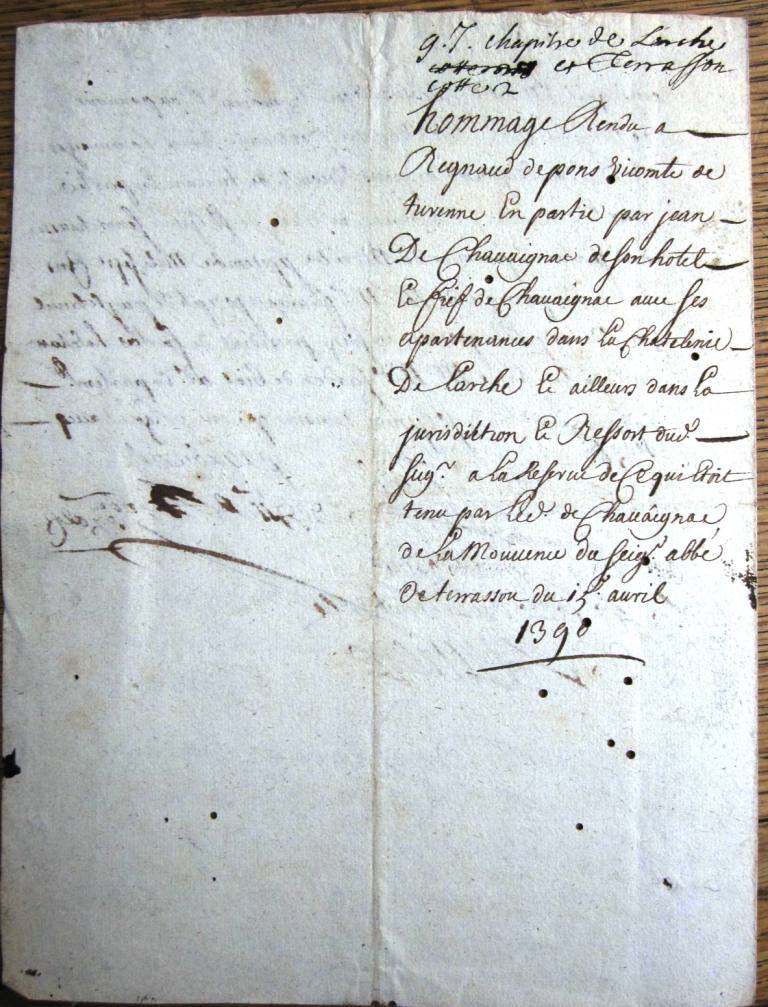 g. 7. chapitre de Larche
et Terrasson
cotte 2
hommage Rendu a
Regnaud de pons vicomte de
turenne En partie par jean
De Chavaignac de son hotel
Et fief de Chavaignac avec ses
apartenances dans La Chatelenie
De Larche Et ailleurs dans La
jurisdiction Et Ressort dud.
Seigr. a La Reserve de Ce qui Etoit
tenu par Led. de Chavaignac
de La Mouvence du Seigr. abbé
De terrasson du 15 avril
1390